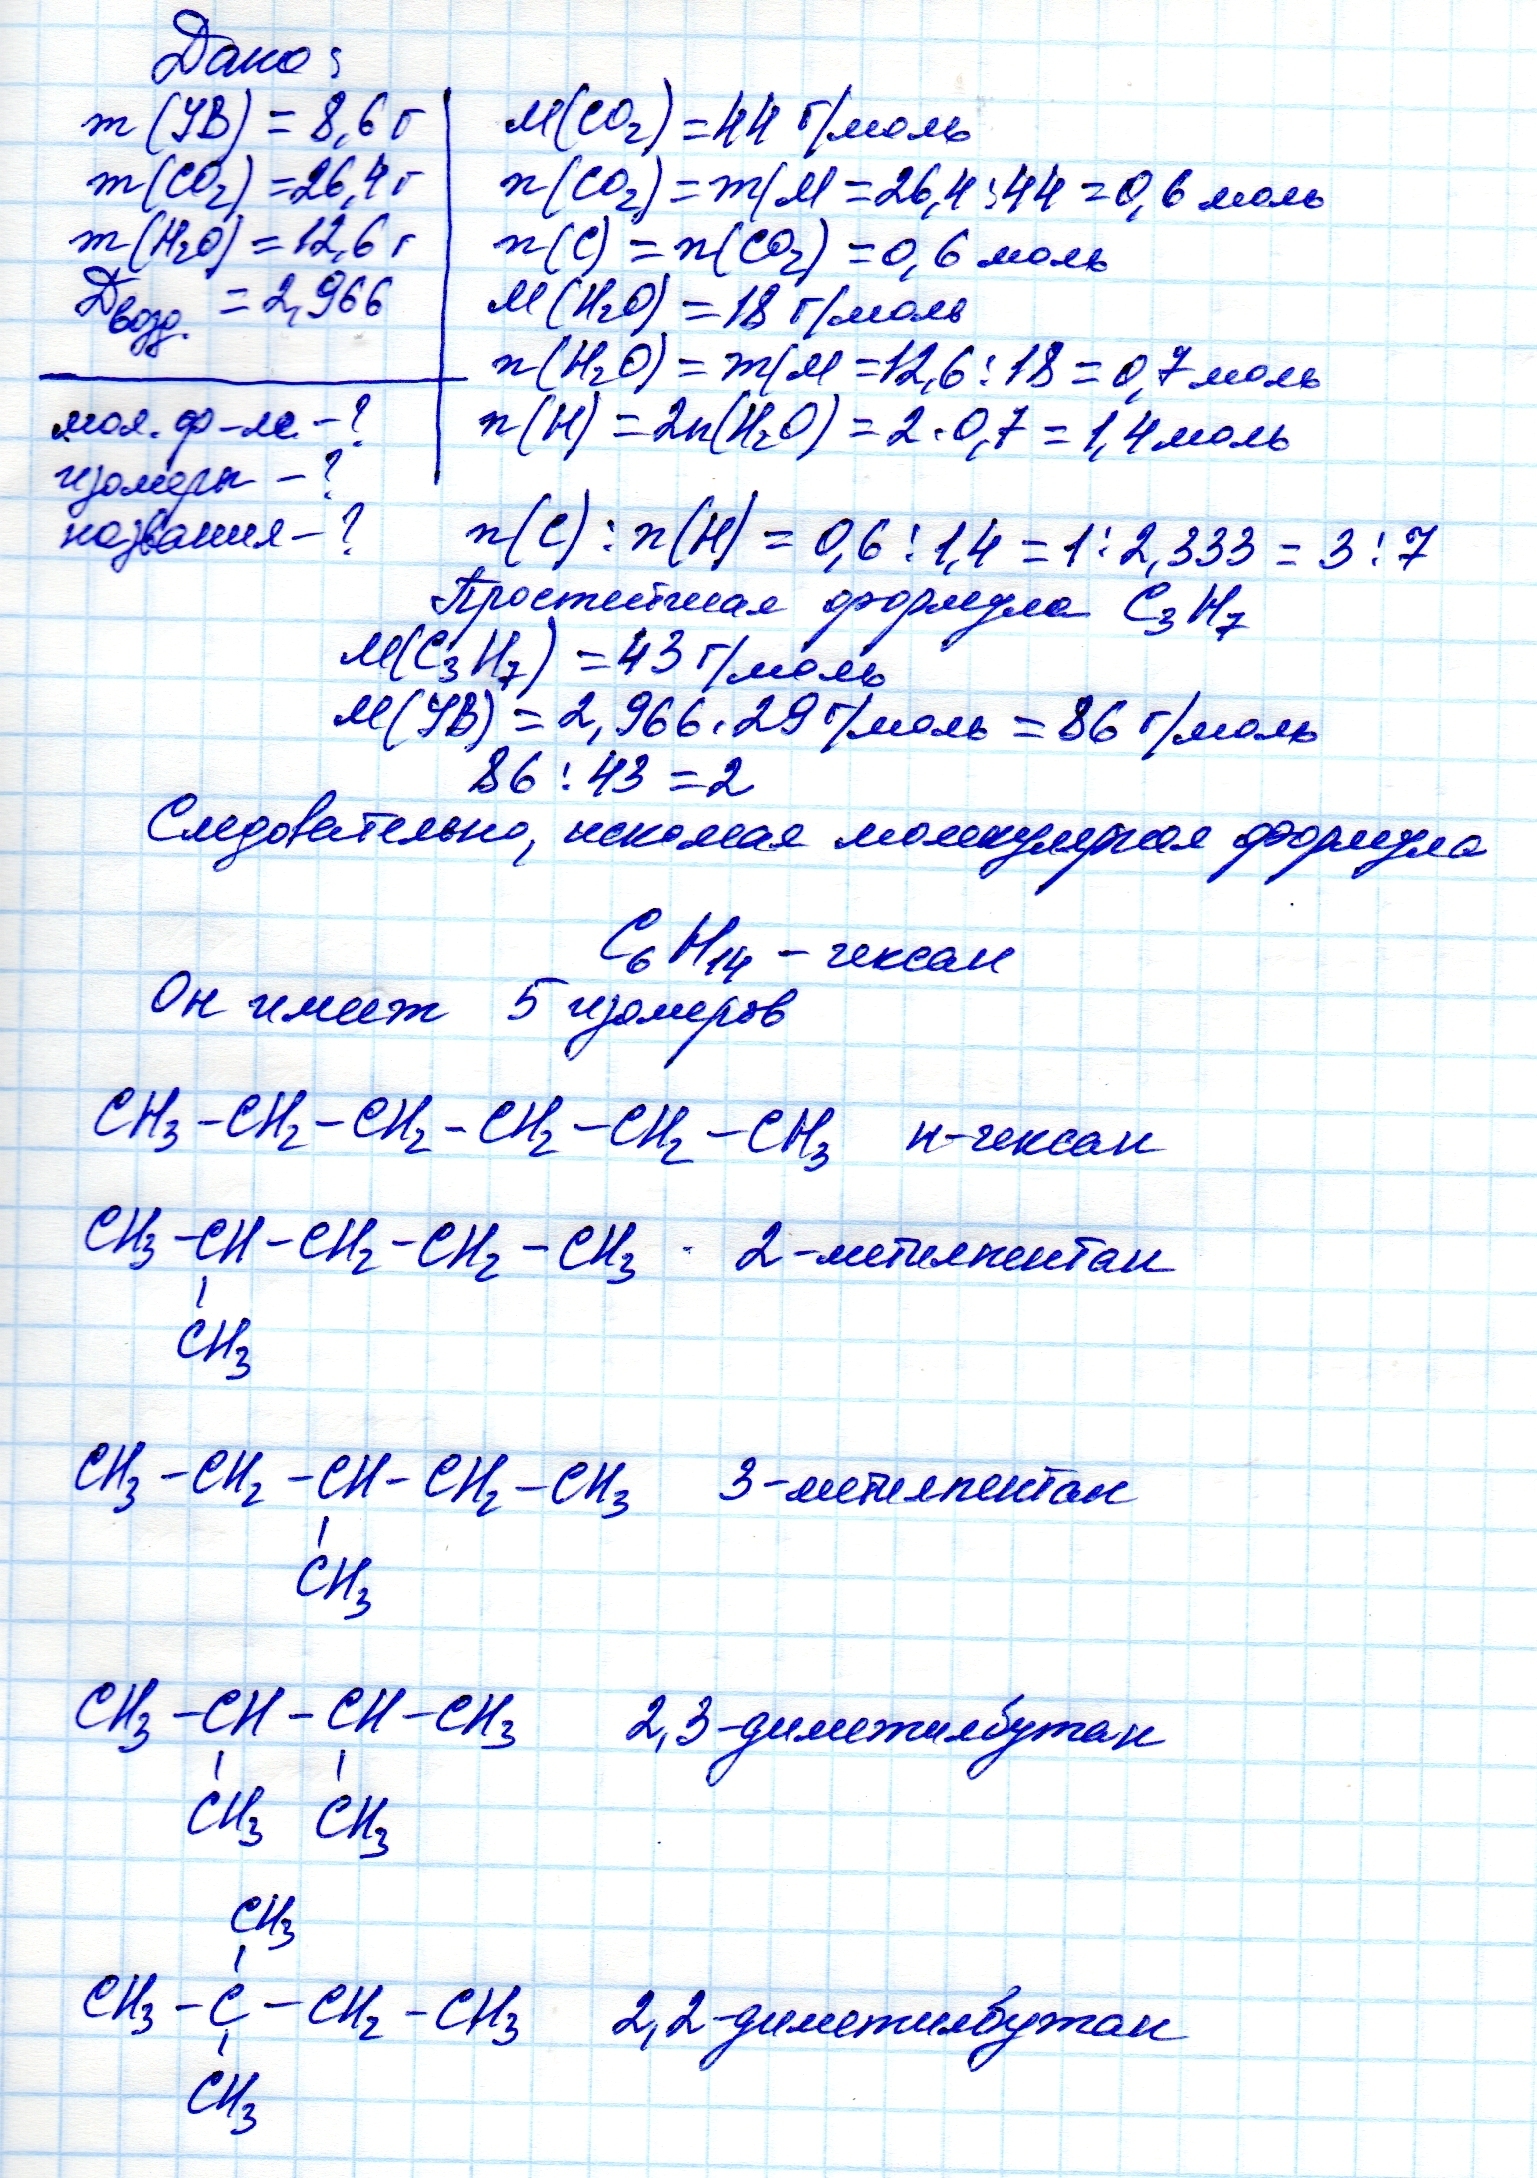 Дано:
m(УВ) = 8,6 г
m(CO₂) = 26,4 г
m(H₂O) = 12,6 г
Dвозд. = 2,966
мол. ф-ла - ?
изомеры - ?
названия - ?
M(CO₂) = 44 г/моль
n(CO₂) = m/M = 26,4 : 44 = 0,6 моль
n(C) = n(CO₂) = 0,6 моль
M(H₂O) = 18 г/моль
n(H₂O) = m/M = 12,6 : 18 = 0,7 моль
n(H) = 2n(H₂O) = 2·0,7 = 1,4 моль
n(C) : n(H) = 0,6 : 1,4 = 1 : 2,333 = 3 : 7
Простейшая формула C₃H₇
M(C₃H₇) = 43 г/моль
M(УВ) = 2,966·29 г/моль = 86 г/моль
86 : 43 = 2
Следовательно, искомая молекулярная формула
C₆H₁₄ - гексан
Он имеет 5 изомеров
CH₃-CH₂-CH₂-CH₂-CH₂-CH₃ н-гексан
CH₃-CH-CH₂-CH₂-CH₃ 2-метилпентан
CH₃
CH₃-CH₂-CH-CH₂-CH₃ 3-метилпентан
CH₃
CH₃-CH-CH-CH₃ 2,3-диметилбутан
CH₃ CH₃
CH₃
CH₃-C-CH₂-CH₃ 2,2-диметилбутан
CH₃